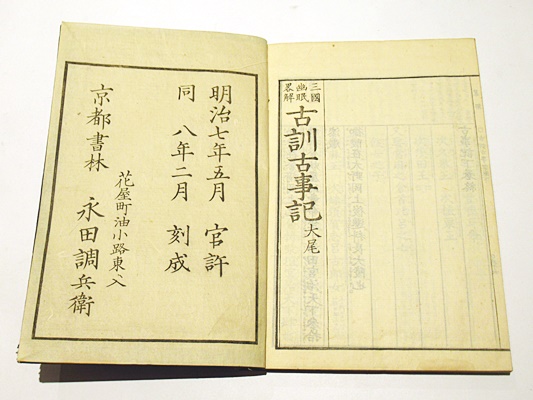 三國
幽眠
畧解
古訓古事記大尾
明治七年五月 官許
同 八年二月 刻成
花屋町油小路東入
京都書林 永田調兵衛